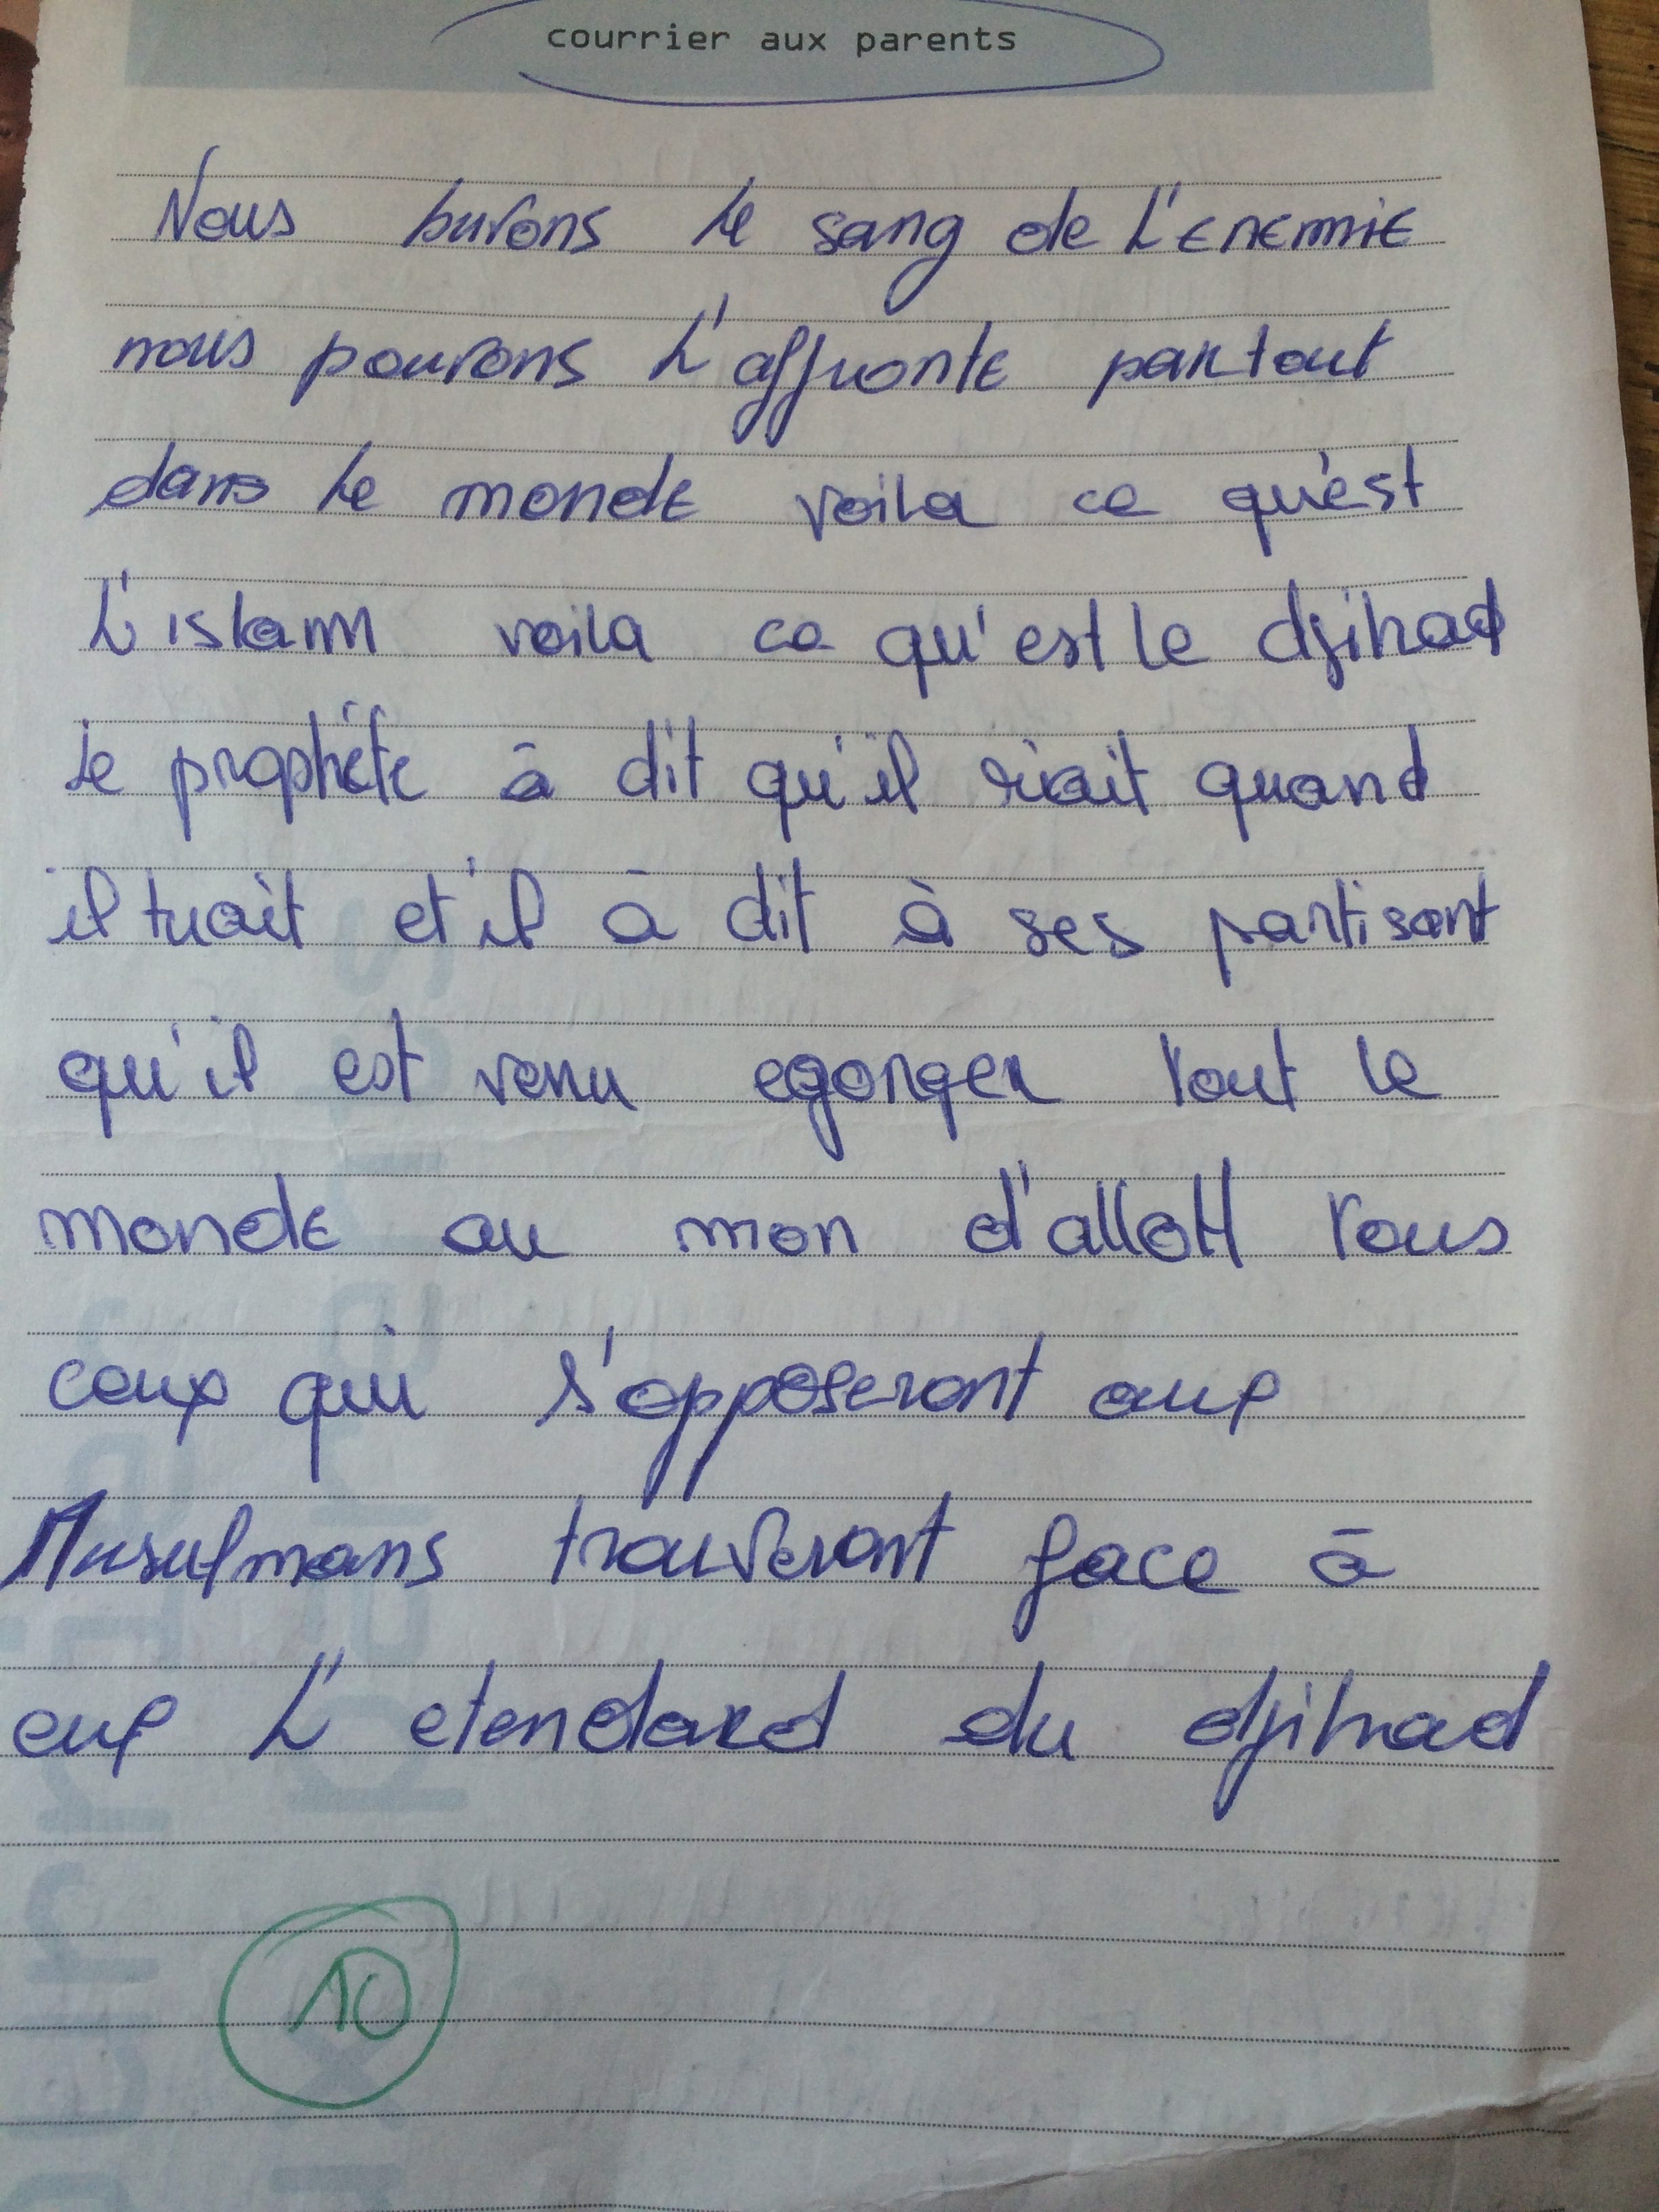 courrier aux parents
Nous burons le sang de L'enemie
nous pourons L'affronte partout
dans le monde voila ce qu'est
L'islam voila ce qu'est le djihad
le prophète à dit qu'il riait quand
il tuait et il à dit à ses partisant
qu'il est venu egorger tout le
monde au mon d'allaH tous
ceux qui s'opposeront aux
Musulmans trouveront face à
eux L'etendard du djihad
10